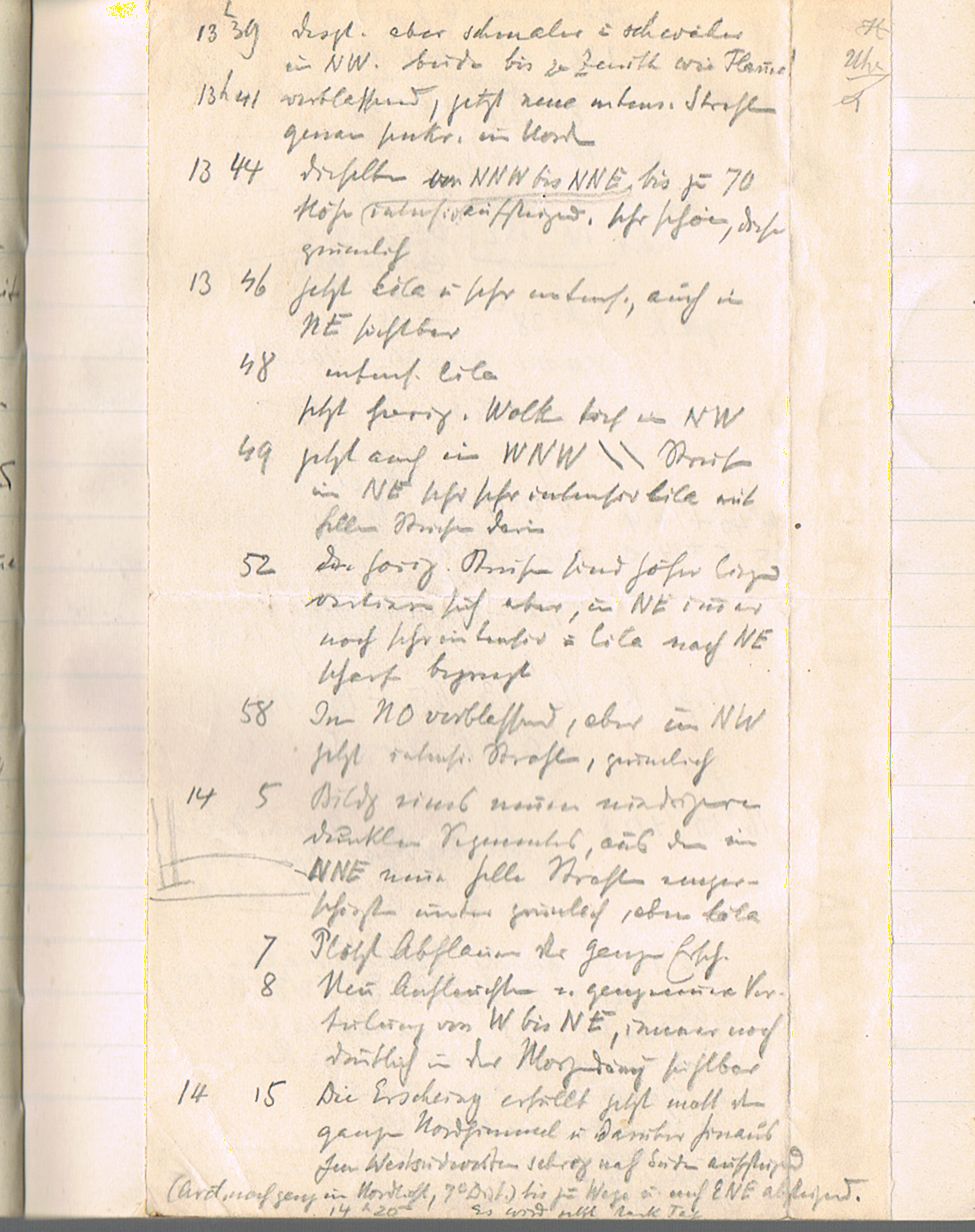 13h 39 desgl. aber schmaler u schwächer
in NW. beide bis zu Zenith wie Flamme
13h 41 verblassend, jetzt neue intens. Strahlen
genau senkr. im Norden
13 44 dieselben von NNW bis NNE, bis zu 70
Höhe intensiv aufsteigend. sehr schön, diese
grünlich
13 46 jetzt lila u sehr intens., auch in
NE sichtbar
48 intens. lila
jetzt horiz. Wolke hoch in NW
49 jetzt auch in WNW \\ Streifen
im NE sehr sehr intensiv lila mit
hellen Streifen darin
52 Die horiz. Streifen sind höher liegend
verlieren sich aber, in NE immer
noch sehr intensiv u lila nach NE
scharf begrenzt
58 Im NO verblassend, aber im NW
jetzt intens. Strahlen, grünlich
14 5 Bildg eines neuen niedrigeren
dunklen Segmentes, aus dem im
NNE neue helle Strahlen
unten grünlich, oben lila
7 Plötzl Abflauen der ganzen Ersch.
8 Neu Aufleuchten u. Ver-
teilung von W bis NE, immer noch
deutlich in der sichtbar
14 15 Die Erscheing erfüllt jetzt matt den
ganzen Nordhimmel u darüber hinaus
Im Westsüdwesten schräg nach Süden aufsteigend
(Arct. noch ganz im Nordlicht, 7° Dist.) bis zu Wega u. nach ENE absteigend.
14h 20 Es wird jetzt stark Tag
Uhr